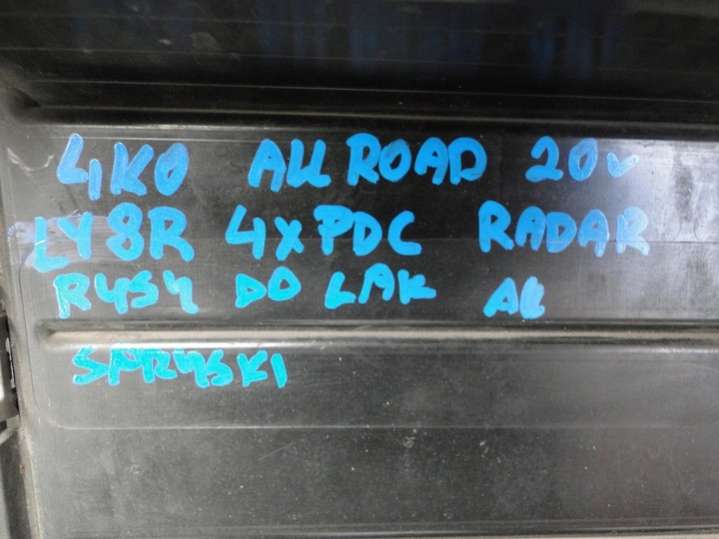 4K0 ALLROAD 20v
LY8R 4xPDC RADAR
RYSY DO LAK AL
SPRYSKI